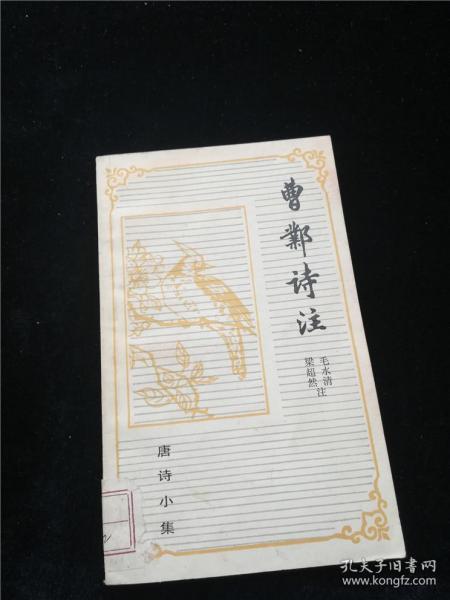 曹邺诗注
毛水清
梁超然 注
唐诗小集
孔夫子旧书网
www.kongfz.com